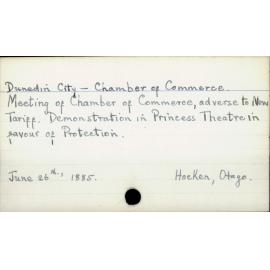 Dunedin City - Chamber of Commerce.
Meeting of Chamber of Commerce, adverse to New
Tariff. Demonstration in Princess Theatre in
favour of Protection.
June 26th, 1885. Hocken, Otago.